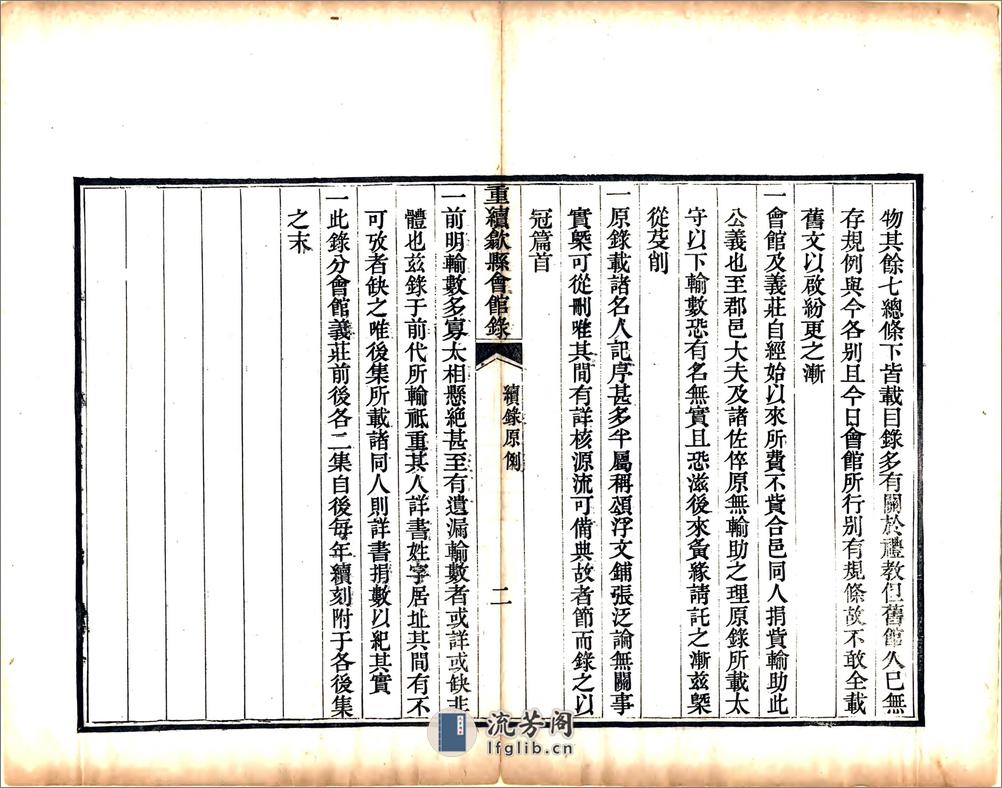 物其餘七總條下皆載目錄多有關於禮教但舊館久已無
存規例與今各别且今日會館所行别有規條故不敢全載
舊文以啟紛更之漸
一會館及義莊自經始以來所費不貲合邑同人捐貲輸助此
公義也至郡邑大夫及諸佐倅原無輸助之理原錄所載太
守以下輸數恐有名無實且恐滋後來夤緣請託之漸兹槩
從芟削
一原錄載諸名人記序甚多半屬稱頌浮文鋪張泛論無關事
實槩可從刪唯其間有詳核源流可備典故者節而錄之以
冠篇首
重續歙縣會館錄
續錄原例
二
一前明輸數多寡太相懸絶甚至有遺漏輸數者或詳或缺非
體也兹錄于前代所輸祗重其人詳書姓字居址其間有不
可攷者缺之唯後集所載諸同人則詳書捐數以紀其實
一此錄分會館義莊前後各二集自後每年續刻附于各後集
之末
流芳阁
lfglib.cn